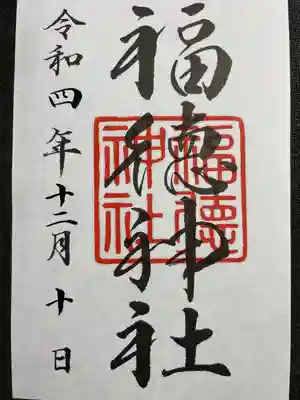 福徳神社
福徳
神社
令和四年十二月十日